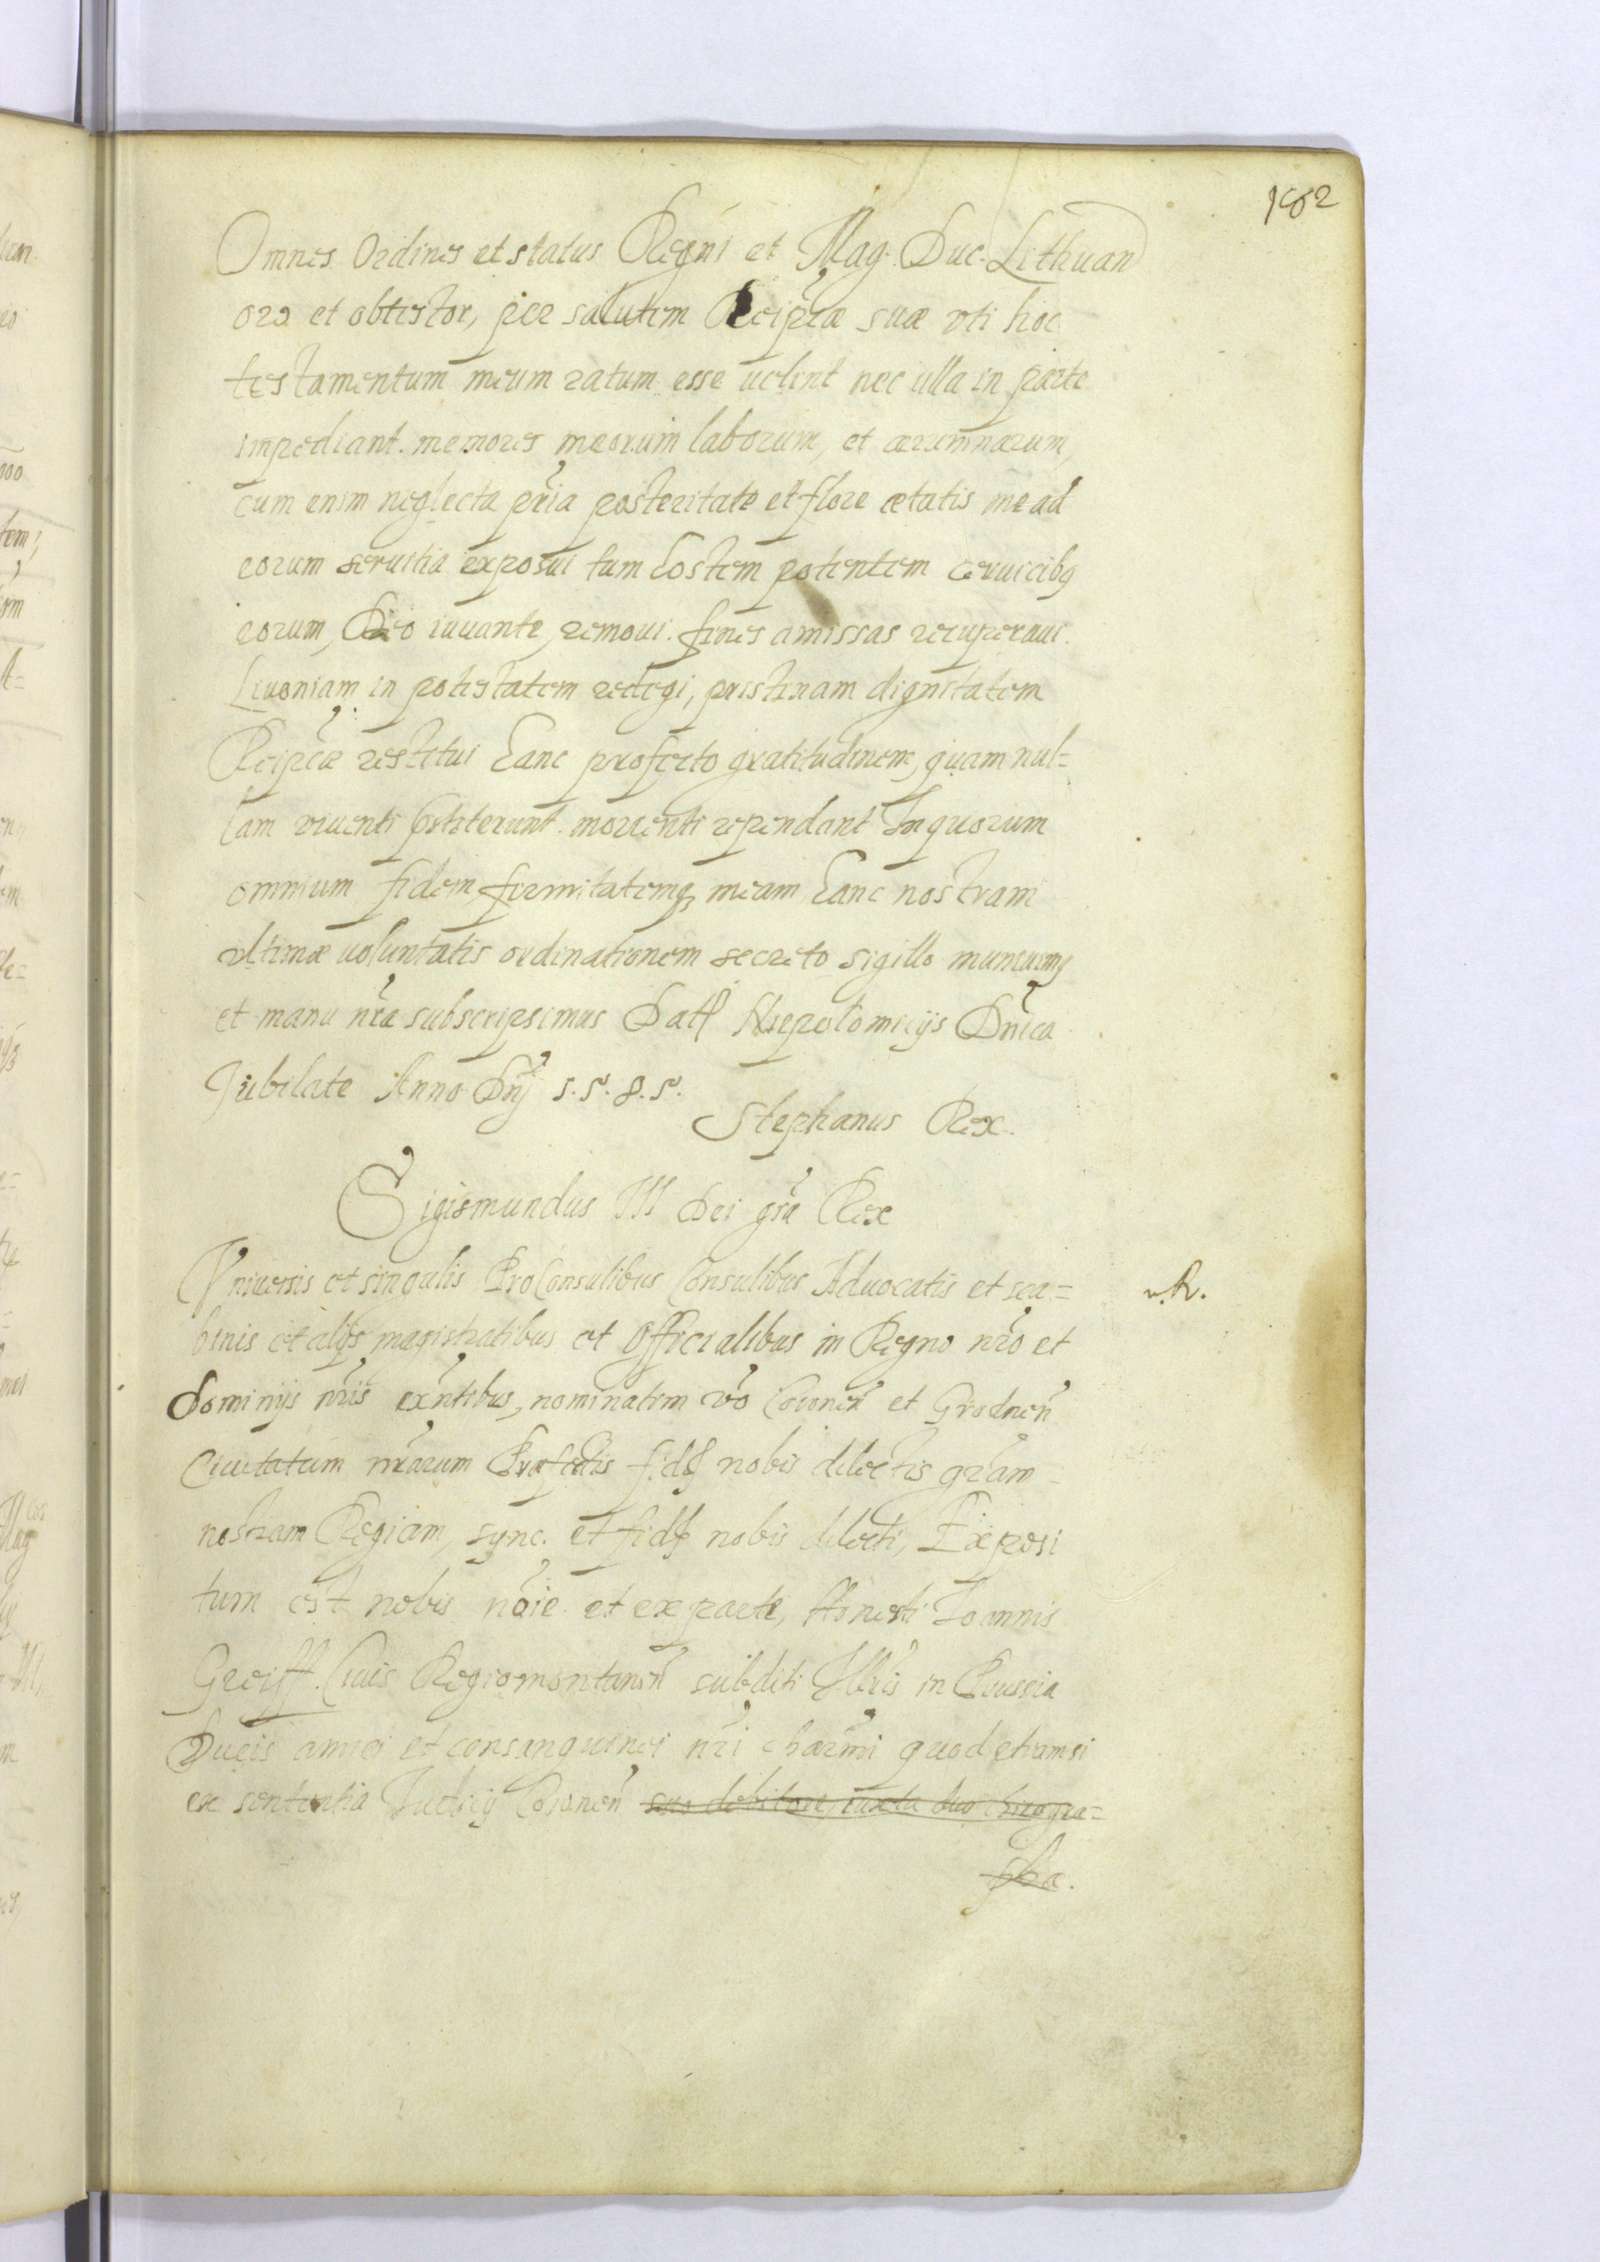 182
Omnes Ordines et status Regni et Mag. Duc. Lithuan
oro et obtestor, per salutem Reipcæ suæ vti hoc
testamentum meum ratum esse uelint nec ulla in parte
impediant. memores meorum laborum, et ærumnarum,
cum enim neglecta pria posteritate et flore ætatis me ad
eorum seruitia exposui tum hostem potentem ceruicibq
eorum, Deo iuuante, remoui. fines amissas recuperaui.
Liuoniam in potestatem redegi, pristinam dignitatem
Reipcæ restitui hanc profecto gratitudinem, quam nul=
lam viuenti pstiterunt morienti rependant In quorum
omnium fidem firmitatemq meam hanc nostram
vltimæ uoluntatis ordinationem secreto sigillo muniuimq
et manu nra subscripsimus Datt Niepolomicijs Dnica
Jubilate Anno Dnj 1.5.8.5.
Stephanus Rex.
Sigismundus III Dei gra Rex
Vniuersis et singulis ProConsulibus Consulibus Aduocatis et sca=
binis et alijs magistratibus et Officialibus in Regno nro et
Dominijs nris exntibus, nominatim vo Couonen et Grodnen
Ciuitatum nrarum Præfectis fidel nobis dilectis gram
nostram Regiam, sync. et fidel nobis dilecti, Exposi
tum est nobis noie et ex parte, Honesti Joannis
Greiff. Ciuis Regiomontanen subditi Illris in Prussia
Ducis amici et consanguinei nri charmi quod etiamsi
ex sententia Judicij Couonen suo debitore, iuxta duo chirogra=
pha.